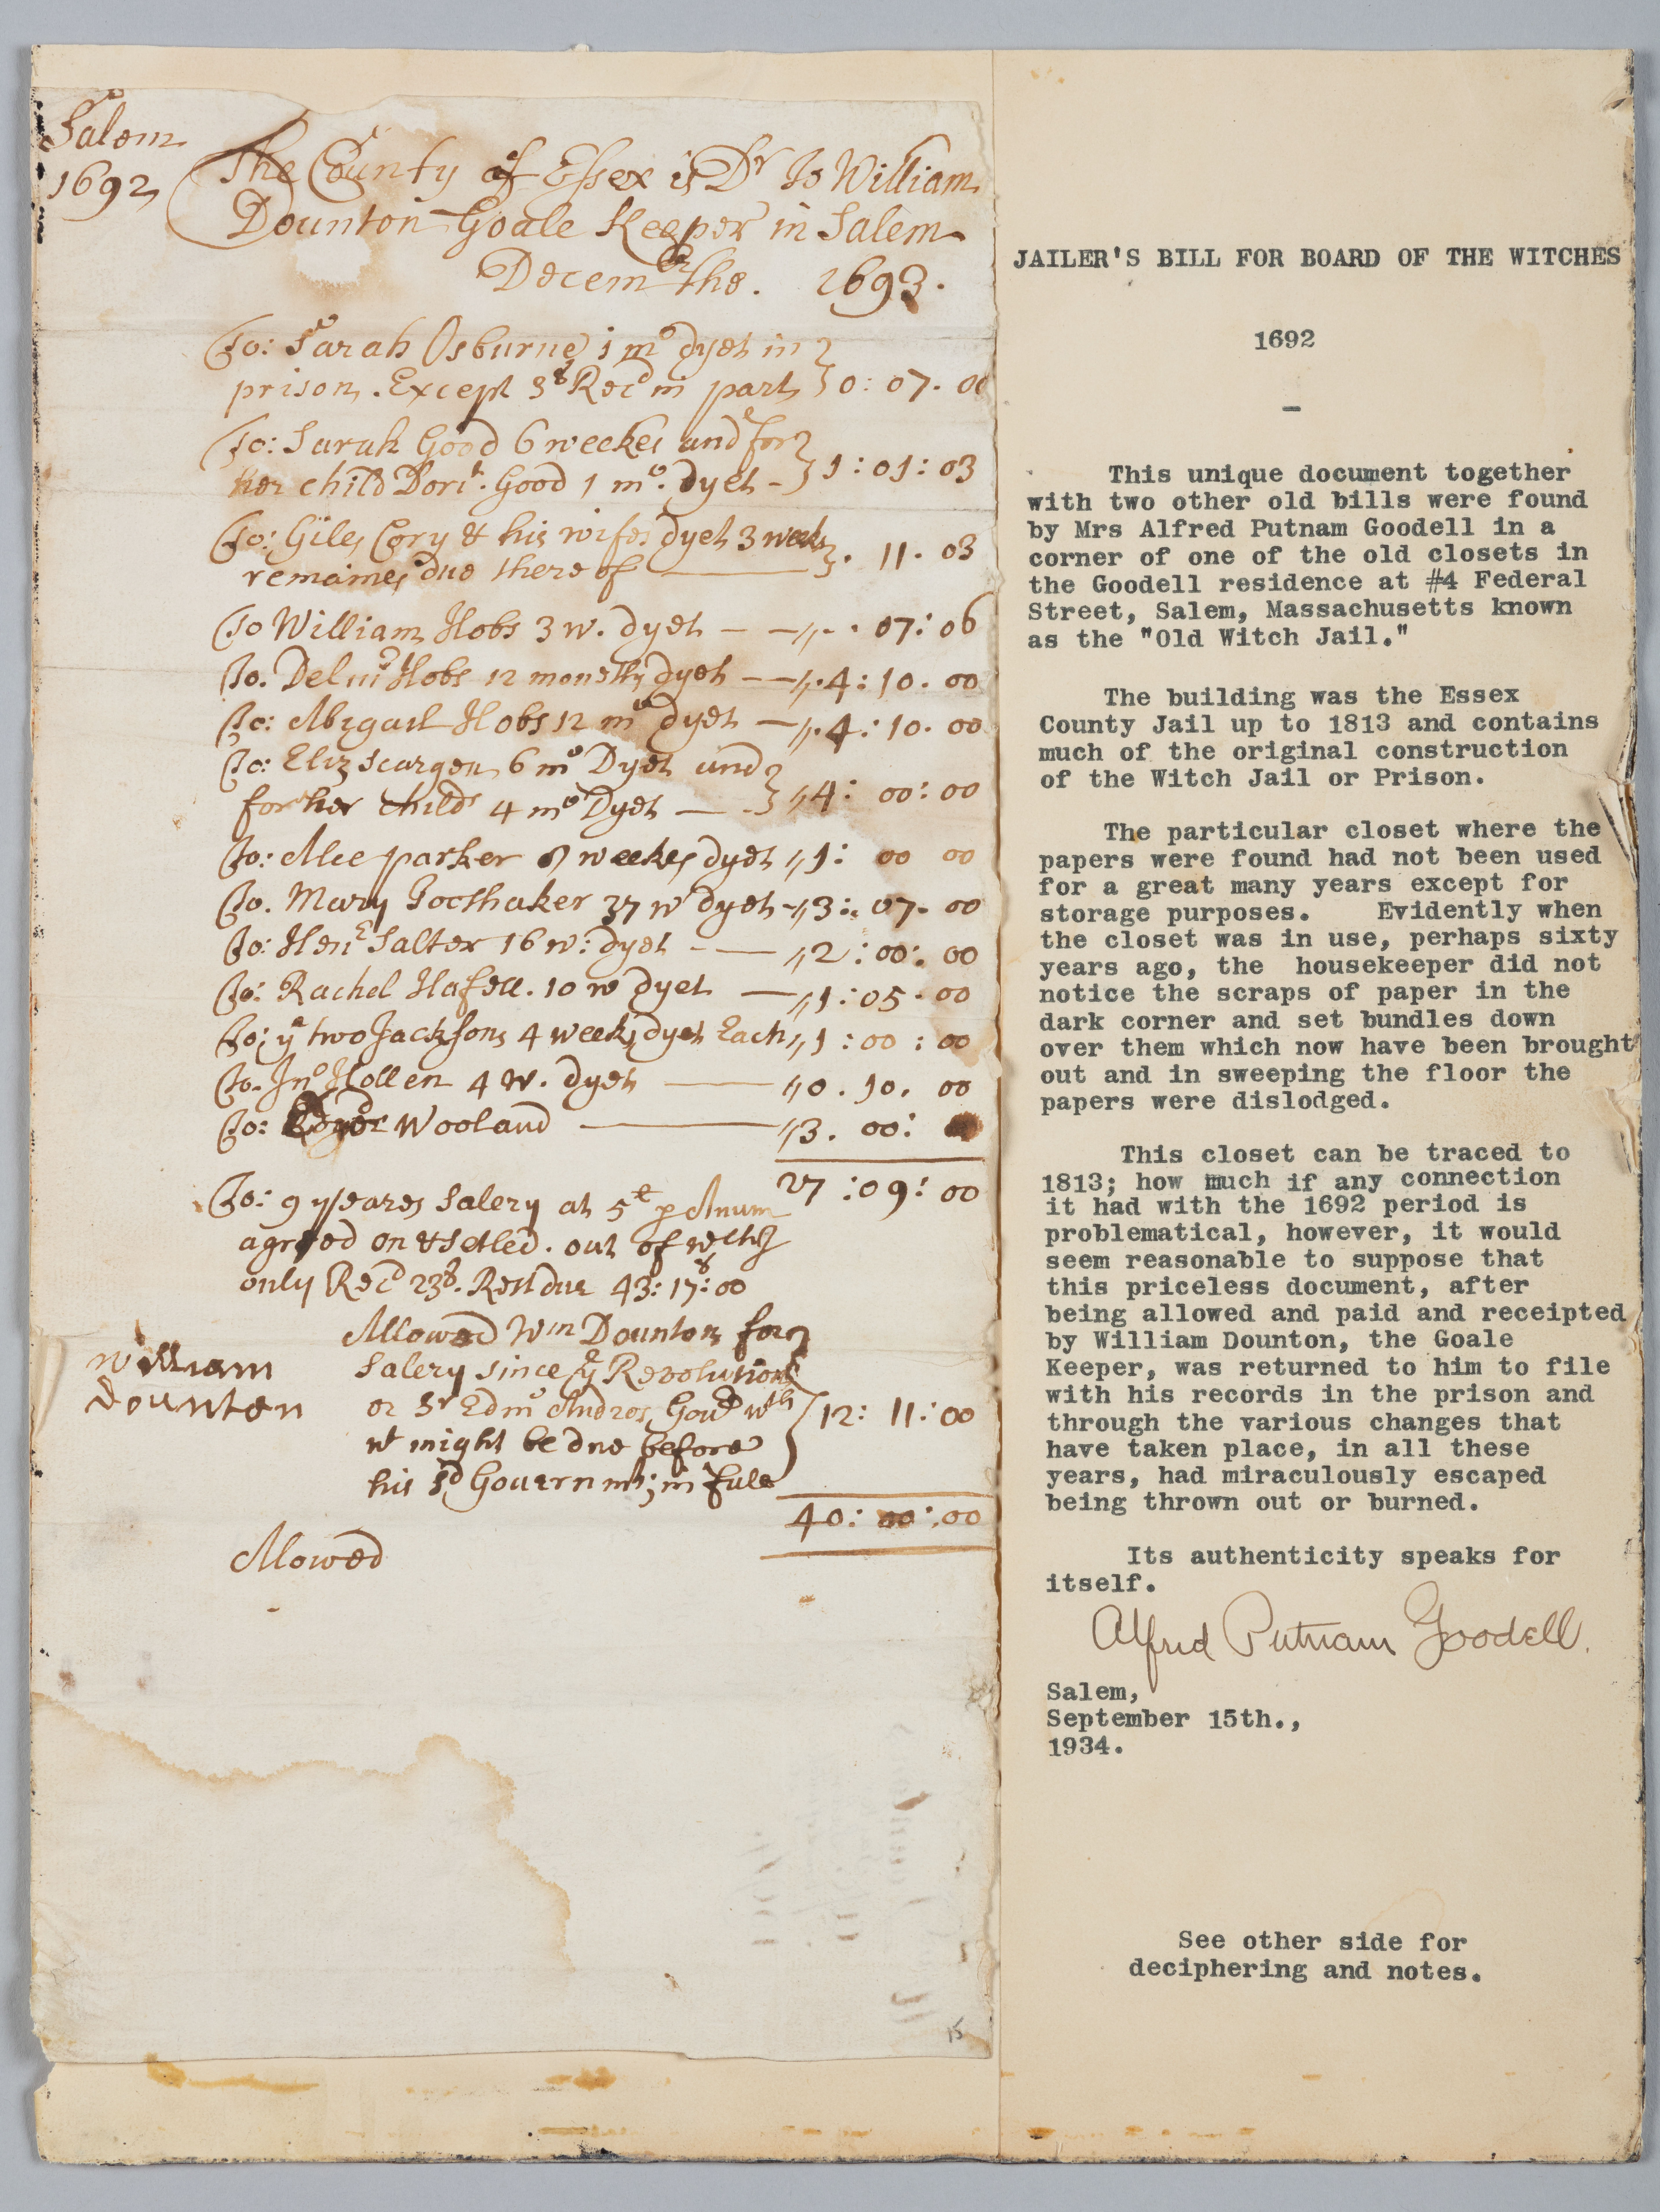 Salem
1692
The County of Essex is Dr To William
Dounton Goale Keeper in Salem
Decembr the. 1693.
To: Sarah Osburne 1 mo dyet in
prison. Except 3s Recd in part 0: 07. 00
To: Sarah Good 6 weekes and for
her child Dori. Good 1 mo. dyet - 1: 01: 03
To: Giles Cory & his wifes dyet 3 weeks
remaines due there of . 11. 03
To William Hobs 3 w. dyet - - . 07: 06
To. Delivr Hobs 12 moneths dyet - - .4: 10. 00
To: Abigail Hobs 12 mo dyet - .4: 10. 00
To: Eliz Scargen 6 mo Dyet and
for her child 4 mo Dyet - - 4: 00: 00
To: Alce parker weekes dyet 1: 00 00
To. Mary Toothaker 37 w dyet - 3: 07. 00
To: Hene Salter 16 w: dyet - - 2: 00: 00
To: Rachel Hafell. 10 w dyet - 1: 05. 00
To: ye two Jacksons 4 weeks dyet Each 1: 00: 00
To. Jno Hollen 4 w. dyet - 0. 10. 00
To: Wooland - 3. 00:
27: 09: 00
To: 9 yeares Salery at 5 p Anum
agreed on & Setled. out of
only Recd 23. Rest due 43: 17: 00
Allowed Wm Dounton for
Salery since ye Revolution
William
Dounton
or Sr Edmo Andros Govr wth 12: 11: 00
wt might be due before
his sd Governmt; in full
40: 00: 00
Allowed
15
JAILER'S BILL FOR BOARD OF THE WITCHES
1692
—
This unique document together
with two other old bills were found
by Mrs Alfred Putnam Goodell in a
corner of one of the old closets in
the Goodell residence at #4 Federal
Street, Salem, Massachusetts known
as the "Old Witch Jail."
The building was the Essex
County Jail up to 1813 and contains
much of the original construction
of the Witch Jail or Prison.
The particular closet where the
papers were found had not been used
for a great many years except for
storage purposes. Evidently when
the closet was in use, perhaps sixty
years ago, the housekeeper did not
notice the scraps of paper in the
dark corner and set bundles down
over them which now have been brought
out and in sweeping the floor the
papers were dislodged.
This closet can be traced to
1813; how much if any connection
it had with the 1692 period is
problematical, however, it would
seem reasonable to suppose that
this priceless document, after
being allowed and paid and receipted
by William Dounton, the Goale
Keeper, was returned to him to file
with his records in the prison and
through the various changes that
have taken place, in all these
years, had miraculously escaped
being thrown out or burned.
Its authenticity speaks for
itself.
Alfred Putnam Goodell.
Salem,
September 15th.,
1934.
See other side for
deciphering and notes.